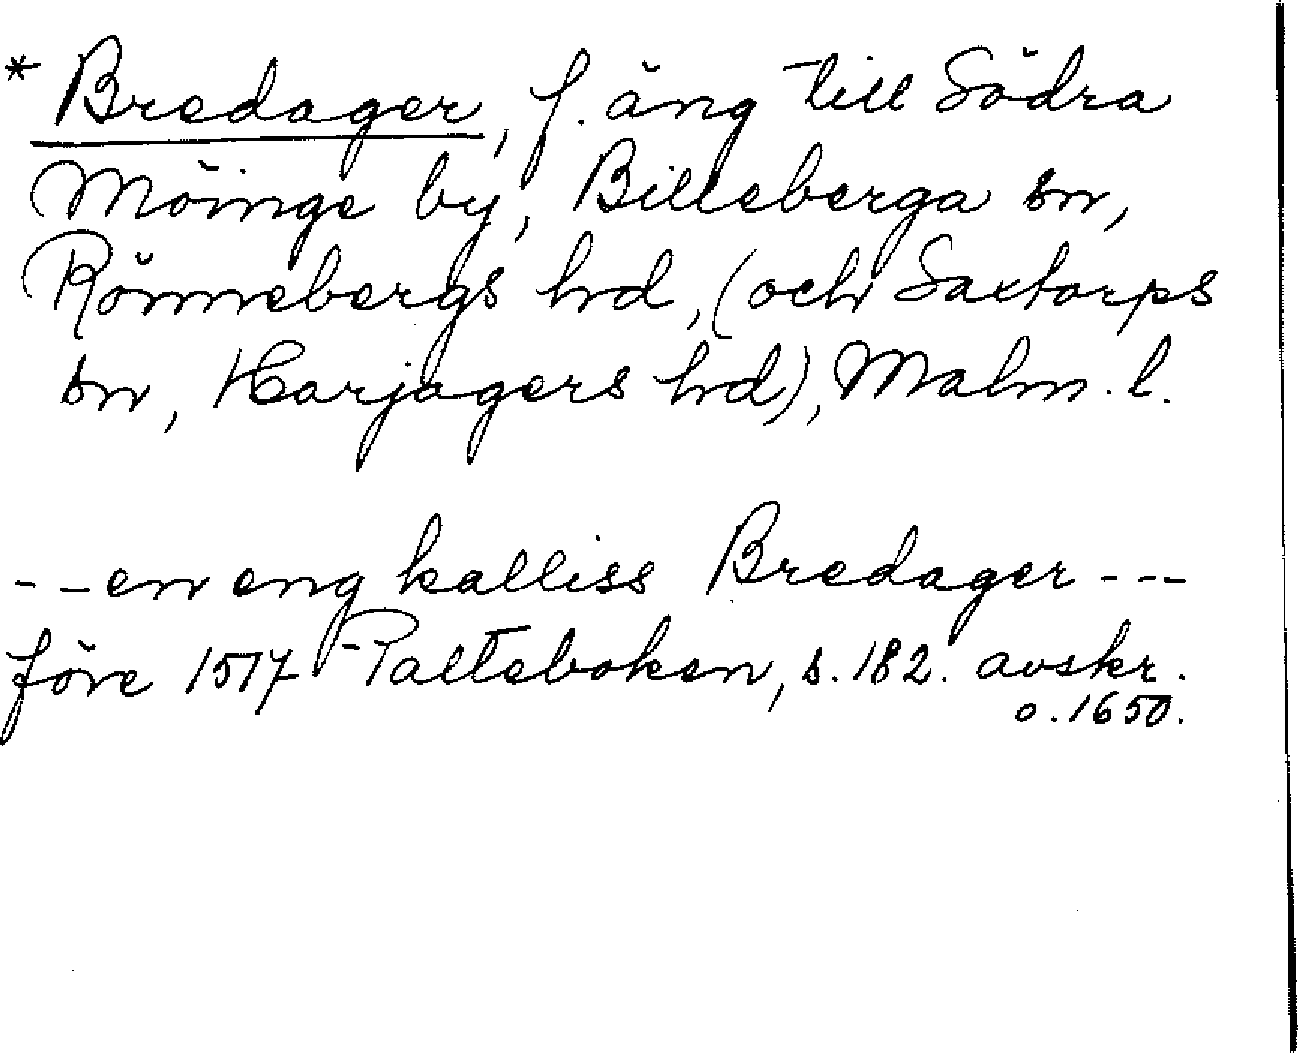 * Bredager, f. äng till Södra
Möinge by, Billeberga sn,
Rönnebergs hd, (och Saxtorps
sn, Harjagers hd), Malm. l.
- - en eng kalliss Bredager - - -
före 1517 Palteboken, s. 182. avskr.
o. 1650.